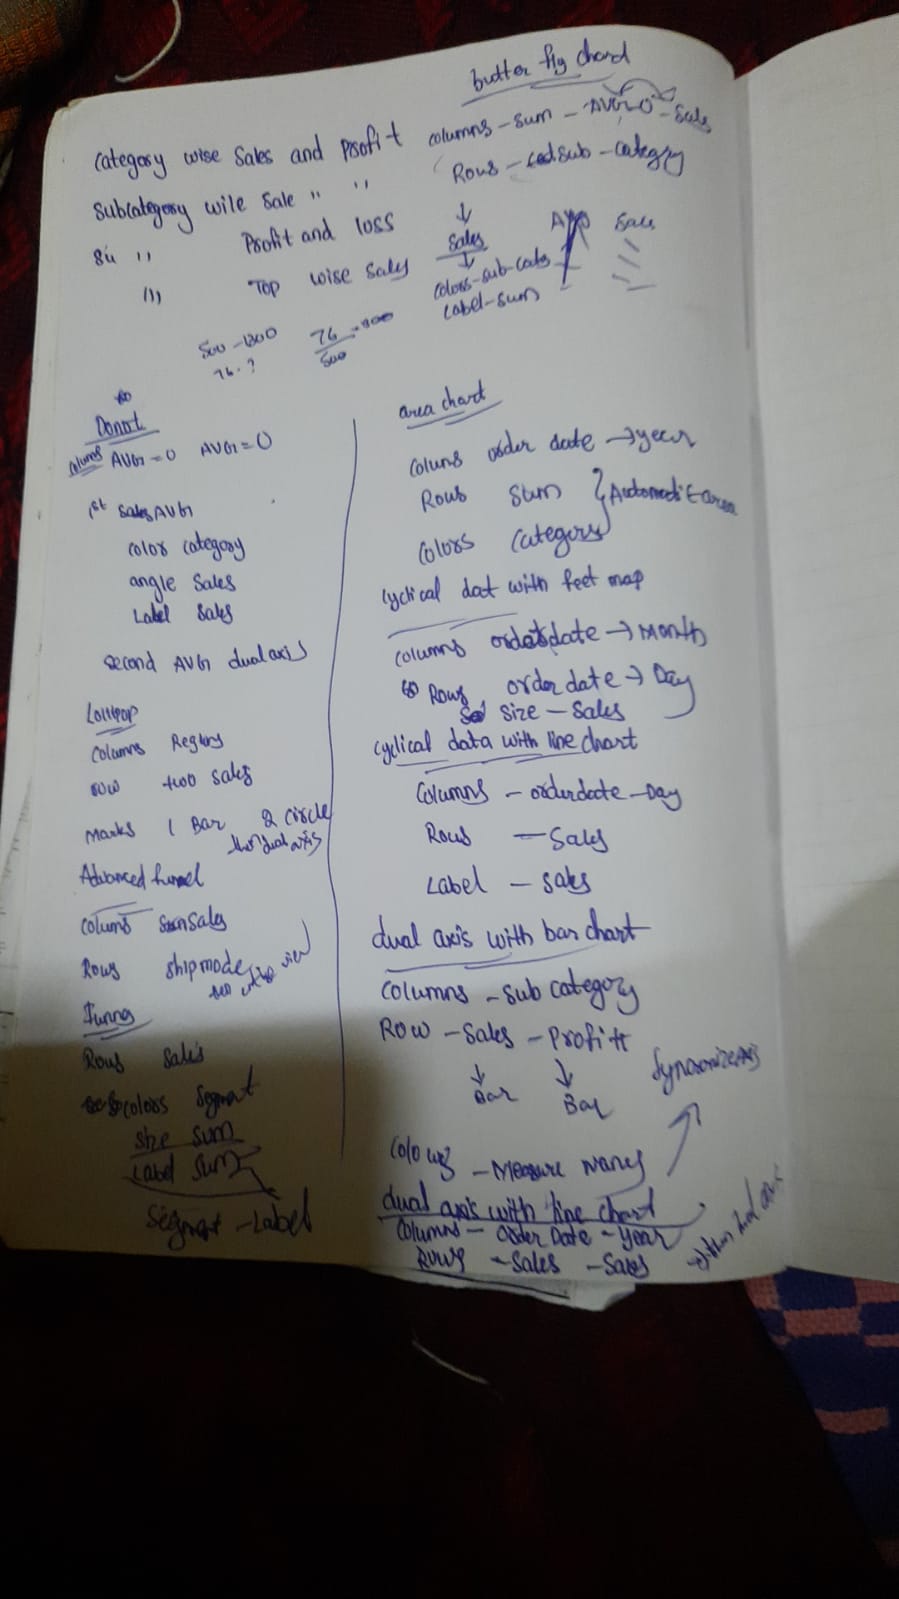 butter fly chard
Category wise Sales and Profit
columns - sum - AVG 0 - Sales
Subcategory wile Sale " "
Rows - sub - category
" Profit and loss
Sales
Sales
" Top wise Sales
colors - sub - cate
Label - sum
500 - 1300
76 - ?
76
500
Donot
columns AVG = 0 AVG = 0
1st Sales AVG
color category
angle Sales
Label Sales
second AVG dual axis
Lollipop
columns Region
row two sales
Marks 1 Bar 2 circle
dual axis
Advanced funnel
columns Sum Sales
Rows shipmode
view
Rows Sales
colors Segment
size sum
Label sum
Segment - Label
area chart
colums order date → year
Rows Sum
Colors Category
Automatic area
cyclical dat with feet map
columns orderdate → Month
Rows order date → Day
size - Sales
cyclical data with line chart
Columns - orderdate - Day
Rows - Sales
Label - Sales
dual axis with bar chart
Columns - Sub category
Row - Sales - Profit
Bar
Bar
- Measure names
dual axis with line chart
Columns - Order Date - year
Rows - Sales - Sales